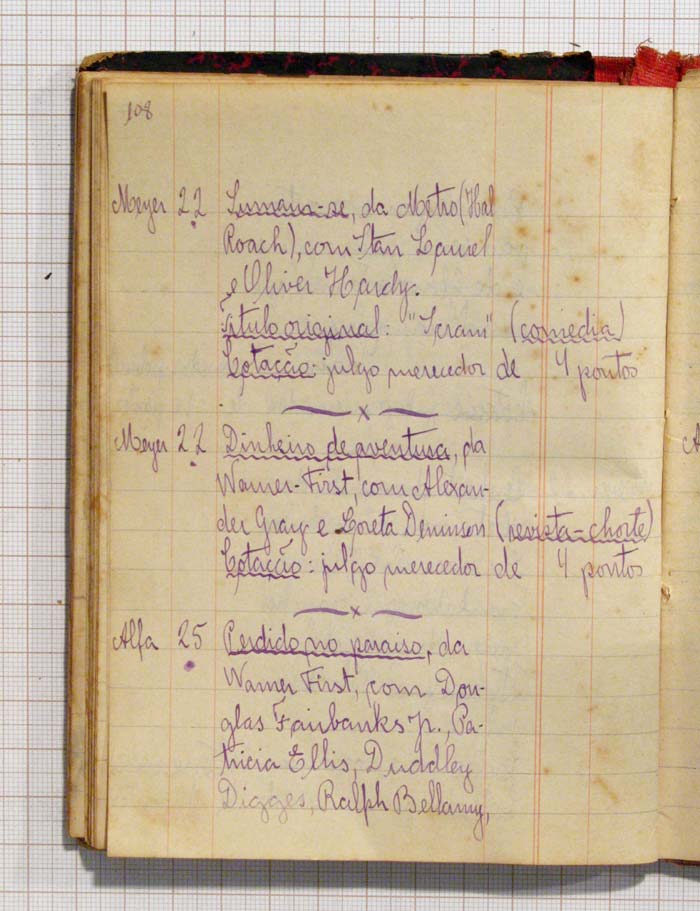 108
Meyer 22 Sumam-se, da Metro (Hal
Roach), com Stan Laurel
e Oliver Hardy.
Titulo original: "Scram" (comedia)
Cotação: julgo merecedor de 4 pontos
x
Meyer 22 Dinheiro de aventura, da
Warner-First, com Alexan-
der Gray e Loreta Deninson (revista-chorte)
Cotação: julgo merecedor de 4 pontos
x
Alfa 25 Perdido no paraiso, da
Warner First, com Dou-
glas Fairbanks Jr., Pa-
tricia Ellis, Duddley
Digges, Ralph Bellamy,
A